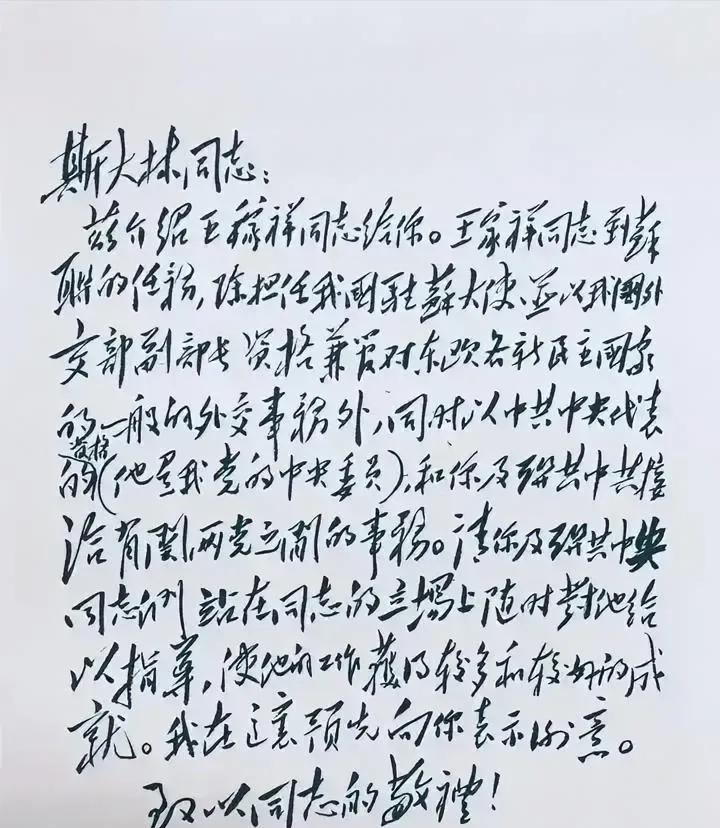 斯大林同志：
兹介绍王稼祥同志给你。王家祥同志到蘇
联的任務，除担任我國駐蘇大使、並以我國外
交部副部长资格兼管对东欧各新民主國家
的一般的外交事務外，同时以中共中央代表
资格
的(他是我党的中央委員)，和你及联共中共接
洽有関两党之间的事務。请你及联共中央
同志们站在同志的立場上随时對他给
以指導，使他的工作獲得较多和较好的成
就。我在這裏预先向你表示谢意。
致以同志的敬禮！